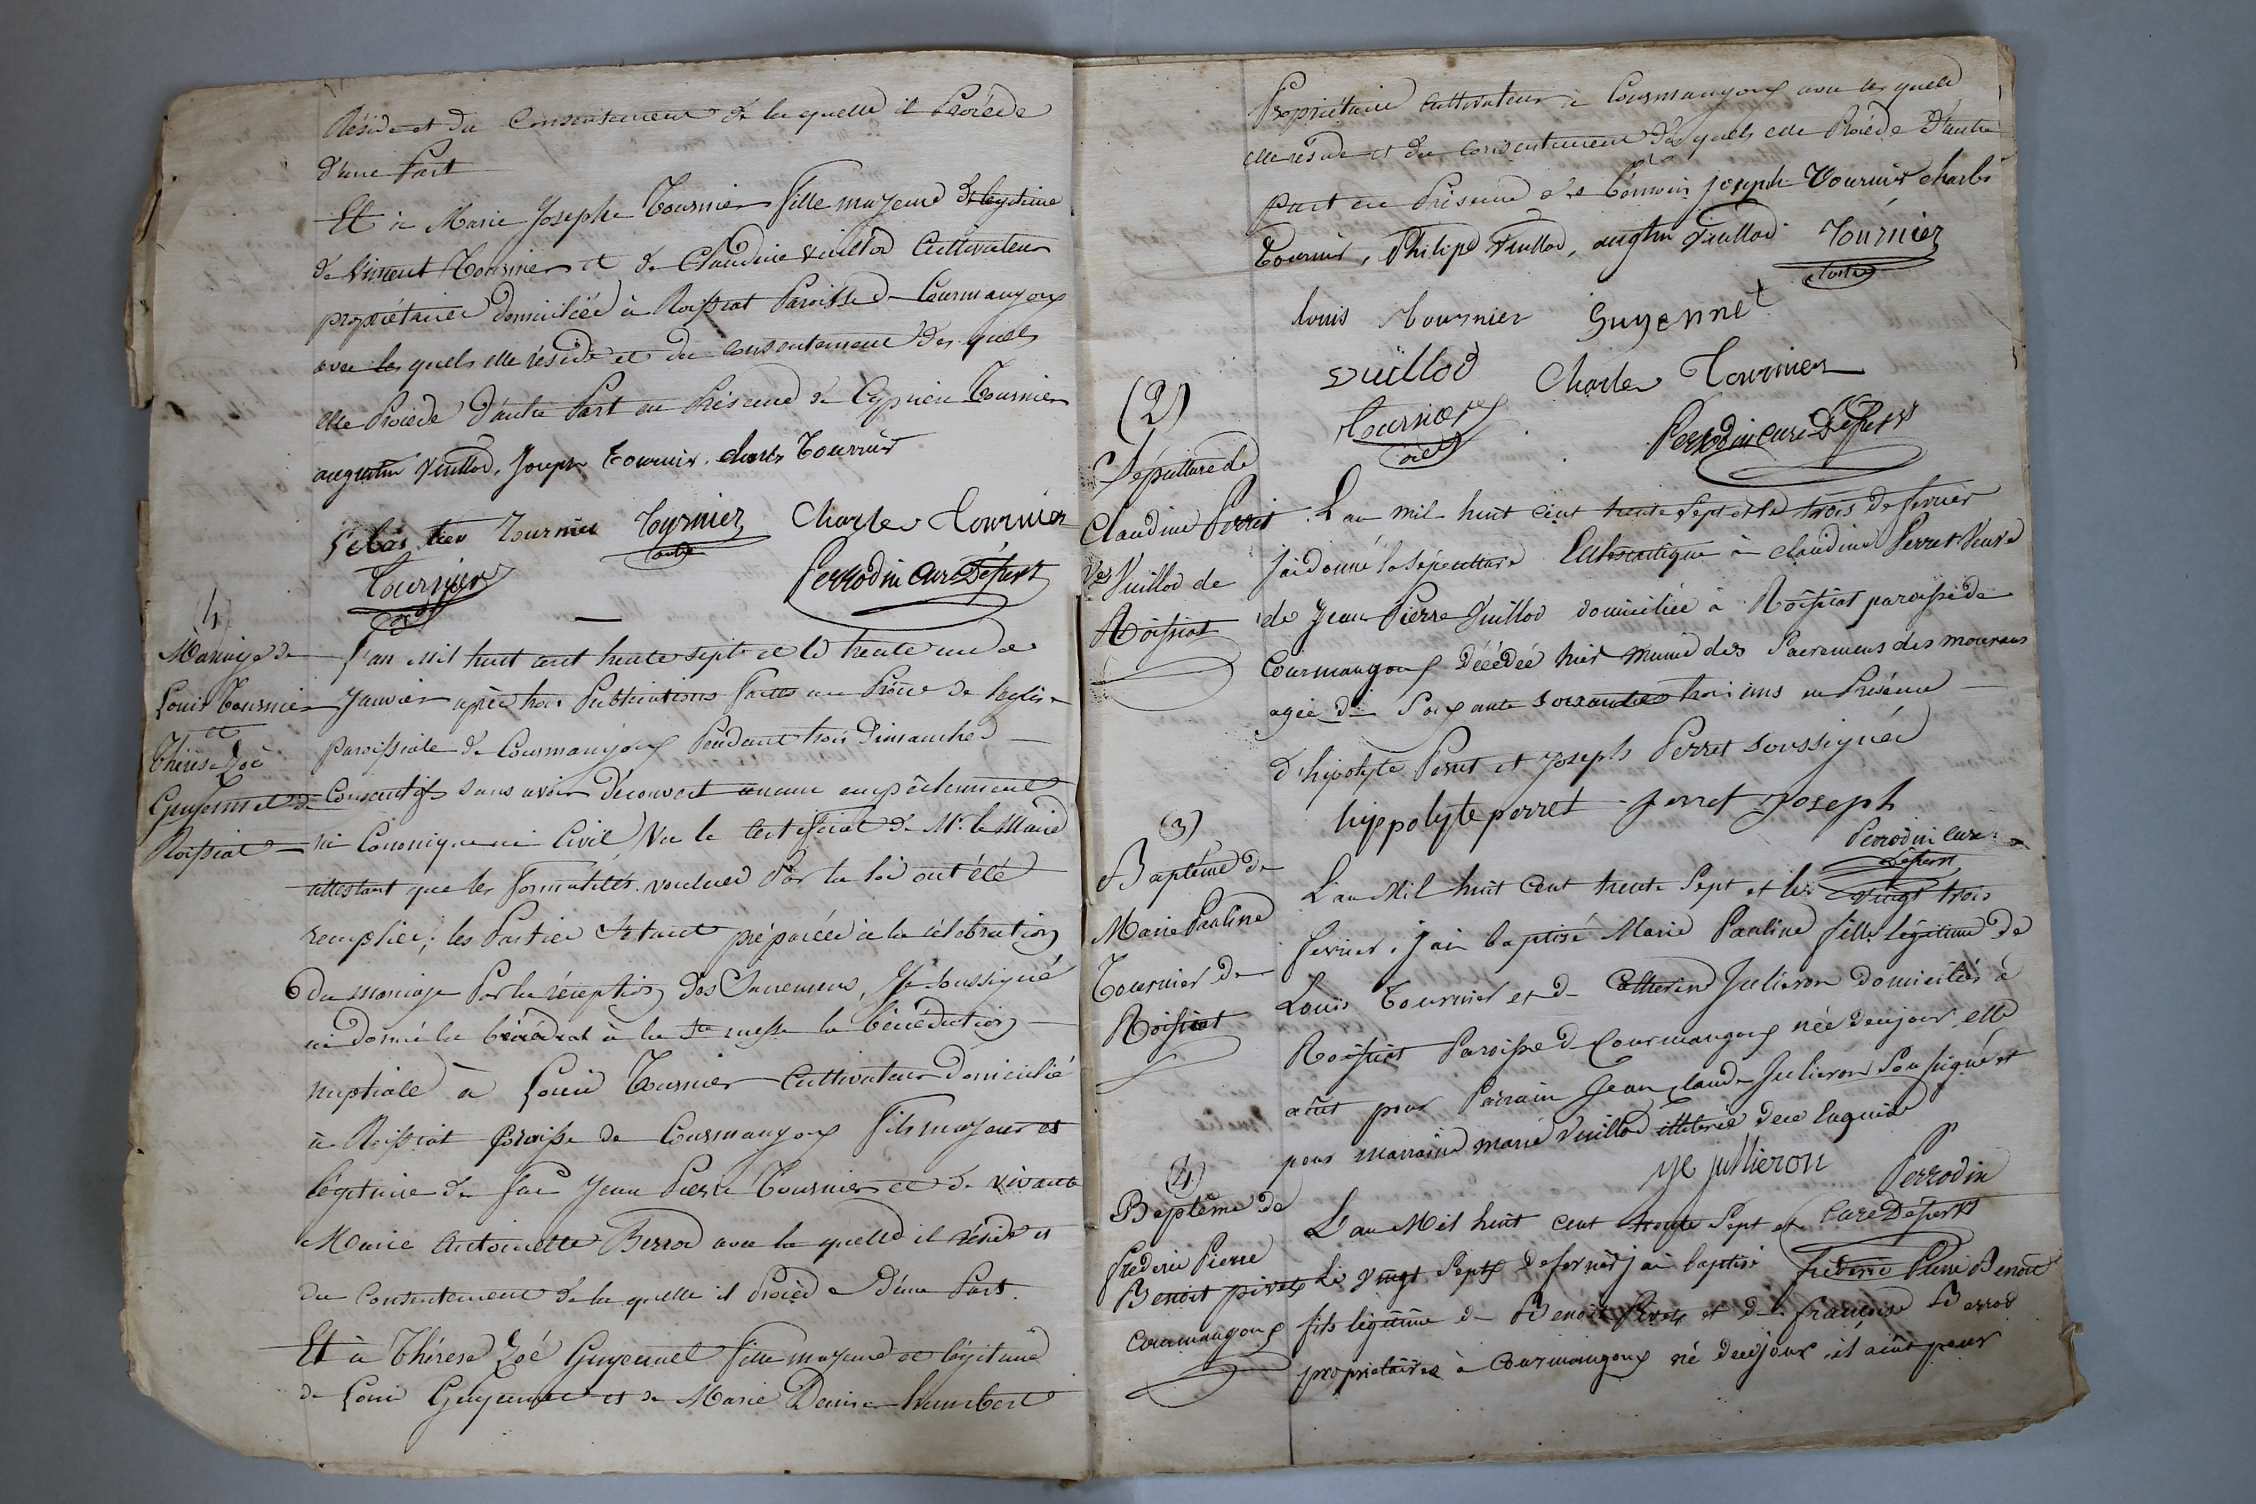 Réside et du Consentement de la quelle il Procède
d'une Part
Et à Marie Josephe Tournier fille majeure et légitime
de Vincent Tournier et de Claudine Vuillod Cultivateurs
propriétaires domiciliés à Roissiat Paroisse de Courmangoux
avec les quels elle réside et du consentement des quels
elle Procède d'autre Part en Présence de Cyprien Tournier
augustin Vuillod, Joseph Tournier, charles Tournier
Sebastien Tournier Tournier Charles Tournier
Tournier Perrodin Curé Desservt
(4)
Mariage de
Louis Tournier
et
Thérèse Zoé
Guyennet de
Roissiat
L'an mil huit cent trente sept et le trente un de
Janvier après trois Publications faites au Prône de l'église
paroissiale de Courmangoux Pendant trois Dimanches
Consécutifs sans avoir découvert aucun empêchement
ni Canonique ni Civil, Vu le Certificat de Mr. le Maire
attestant que les formalités voulues Par la loi ont été
remplies; les Parties s'étant préparées à la célébration
du mariage Par la réception des Sacremens, Je Soussigné
ai donné la bénédiction à la Ste messe la bénédiction
nuptiale à Louis Tournier Cultivateur Domicilié
à Roissiat paroisse de Courmangoux fils majeur et
légitime de feu Jean Pierre Tournier et de vivante
Marie Antoinette Berrod avec la quelle il réside et
du Consentement de la quelle il Procède d'une Part.
Et à Thérèse Zoé Guyennet fille majeure et légitime
de Louis Guyennet et de Marie Denise humbert
Propriétaires cultivateurs à Courmangoux avec les quels
elle réside et du consentement des quels elle Procède d'autre
part en Présence des témoins joseph Tournier charles
Tournier, Philipe Vuillod, augtin Vuillod Tournier
louis Tournier Guyennet
Vuillod Charles Tournier
Tournier Perrodin curé Desservt
(2)
Sépulture de
Claudine Perret
Ve Vuillod de
Roissiat
L'an mil huit cent trente sept et le trois de fevrier
j'ai donné la sépulture Eclésiastique à claudine Perret Veuve
de Jean Pierre Vuillod domiciliée à Roissiat paroisse de
Courmangoux Décédée hier munie des Sacremens des mourans
agée de Soixante soixante trois ans en Présence
d'hipolyte Perret et Joseph Perret soussignés
hippolyte perret perret joseph
Perrodin Curé
Desservt
(3)
Baptême de
Marie Pauline
Tournier de
Roissiat
L'an Mil huit Cent trente Sept et le vingt trois
fevrier, j'ai baptisé Marie Pauline fille légitime de
Louis Tournier et de Catherine Julieron Domiciliés à
Roissiat Paroisse de Courmangoux née de ce jour, elle
a eut pour Parrain Jean Claude Julieron Soussigné et
pour marraine marie Vuillod illitérée de ce enquise
Perrodin
Curé Desservt
(4)
Baptême de
Frederic Pierre
Benoit pivet
Courmangoux
L'an Mil huit cent trente Sept et
le vingt Sept de fevrier j'ai baptisé frederic Pierre Benoit
fils légitime de Benoit Pivet et de françoise Berrod
propriétaires à Courmangoux né de ce jour, il a eut pour